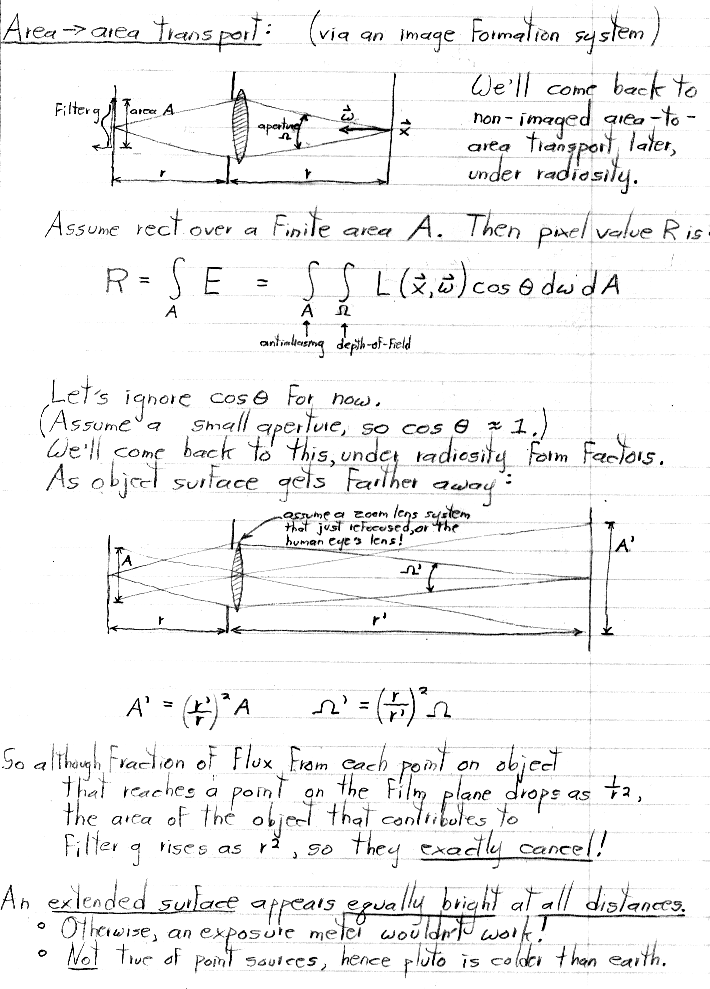 Area → area transport: (via an image formation system)
Filter g
area A
aperture Ω
ω⃗
x⃗
r
r
We'll come back to
non-imaged area-to-
area transport later,
under radiosity.
Assume rect over a finite area A. Then pixel value R is:
R = ∫_A E = ∫_A ∫_Ω L(x⃗,ω⃗) cos θ dω dA
↑ ↑
antialiasing depth-of-field
Let's ignore cos θ for now.
(Assume a small aperture, so cos θ ≈ 1.)
We'll come back to this, under radiosity form factors.
As object surface gets farther away:
assume a zoom lens system
that just refocused, or the
human eye's lens!
A
Ω'
A'
r
r'
A' = (r'/r)² A Ω' = (r/r')² Ω
So although fraction of flux from each point on object
that reaches a point on the film plane drops as 1/r²,
the area of the object that contributes to
filter g rises as r², so they exactly cancel!
An extended surface appears equally bright at all distances.
° Otherwise, an exposure meter wouldn't work!
° Not true of point sources, hence pluto is colder than earth.